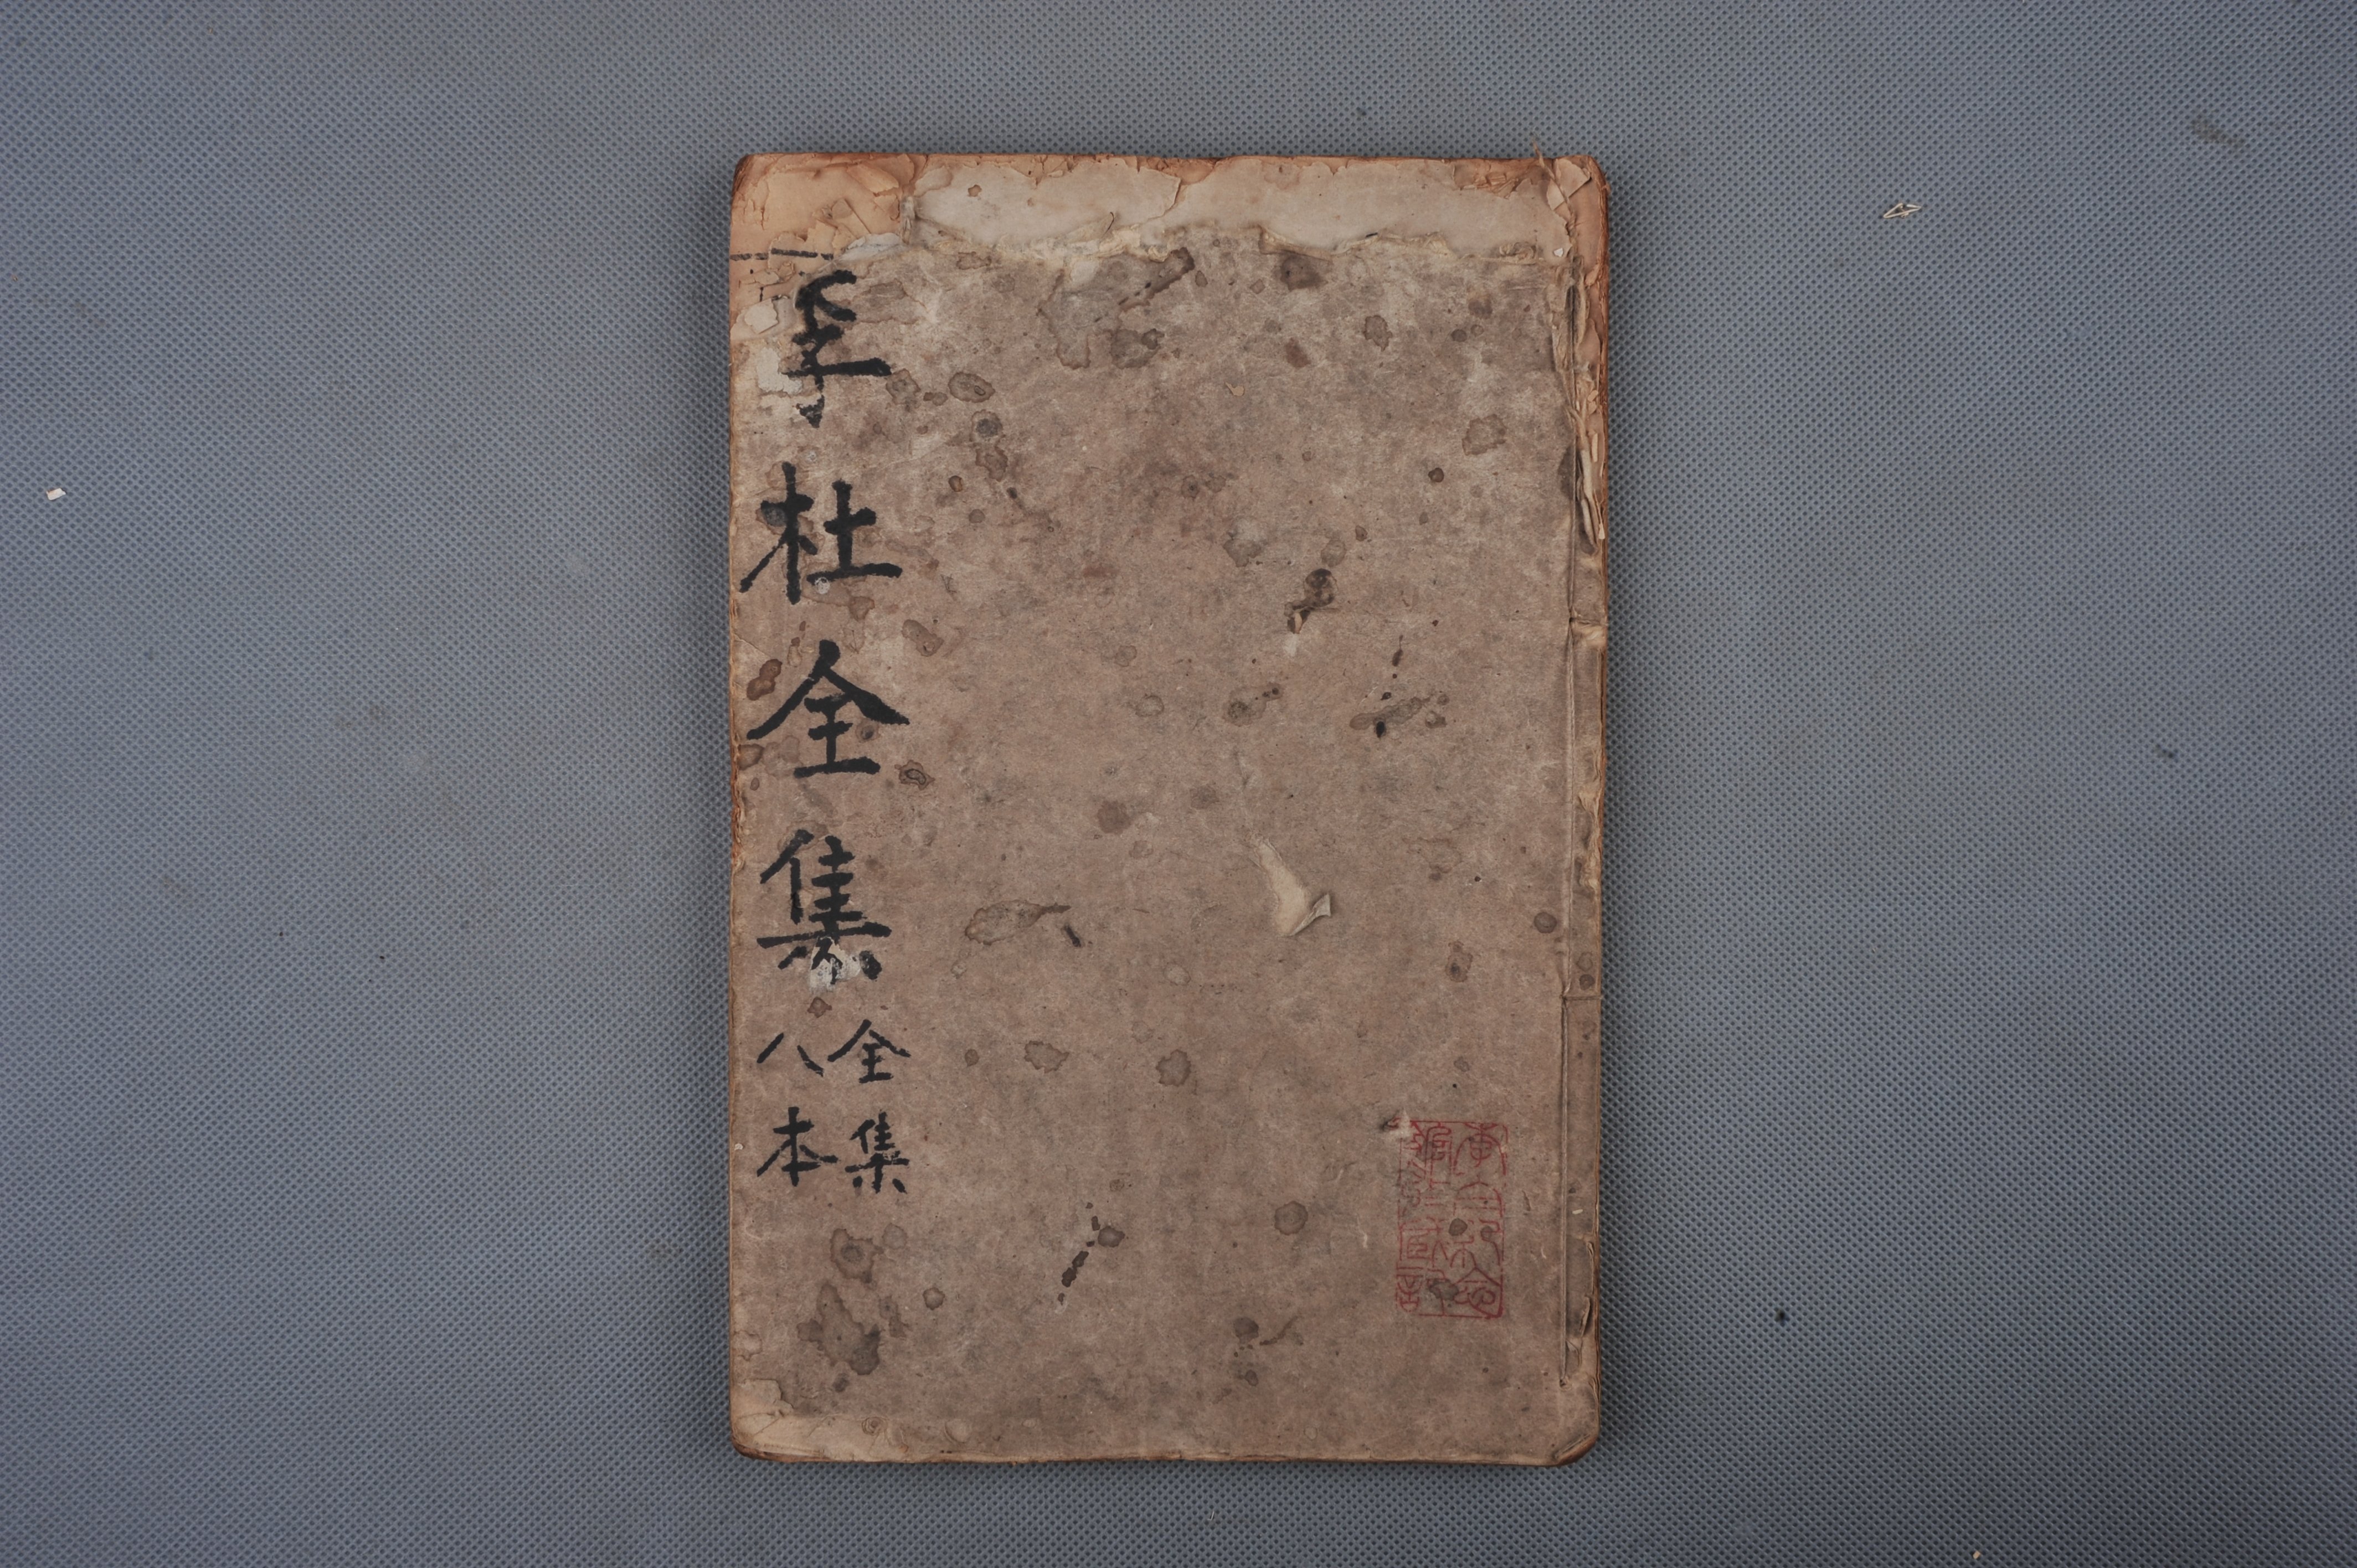 李杜全集
全集
八本